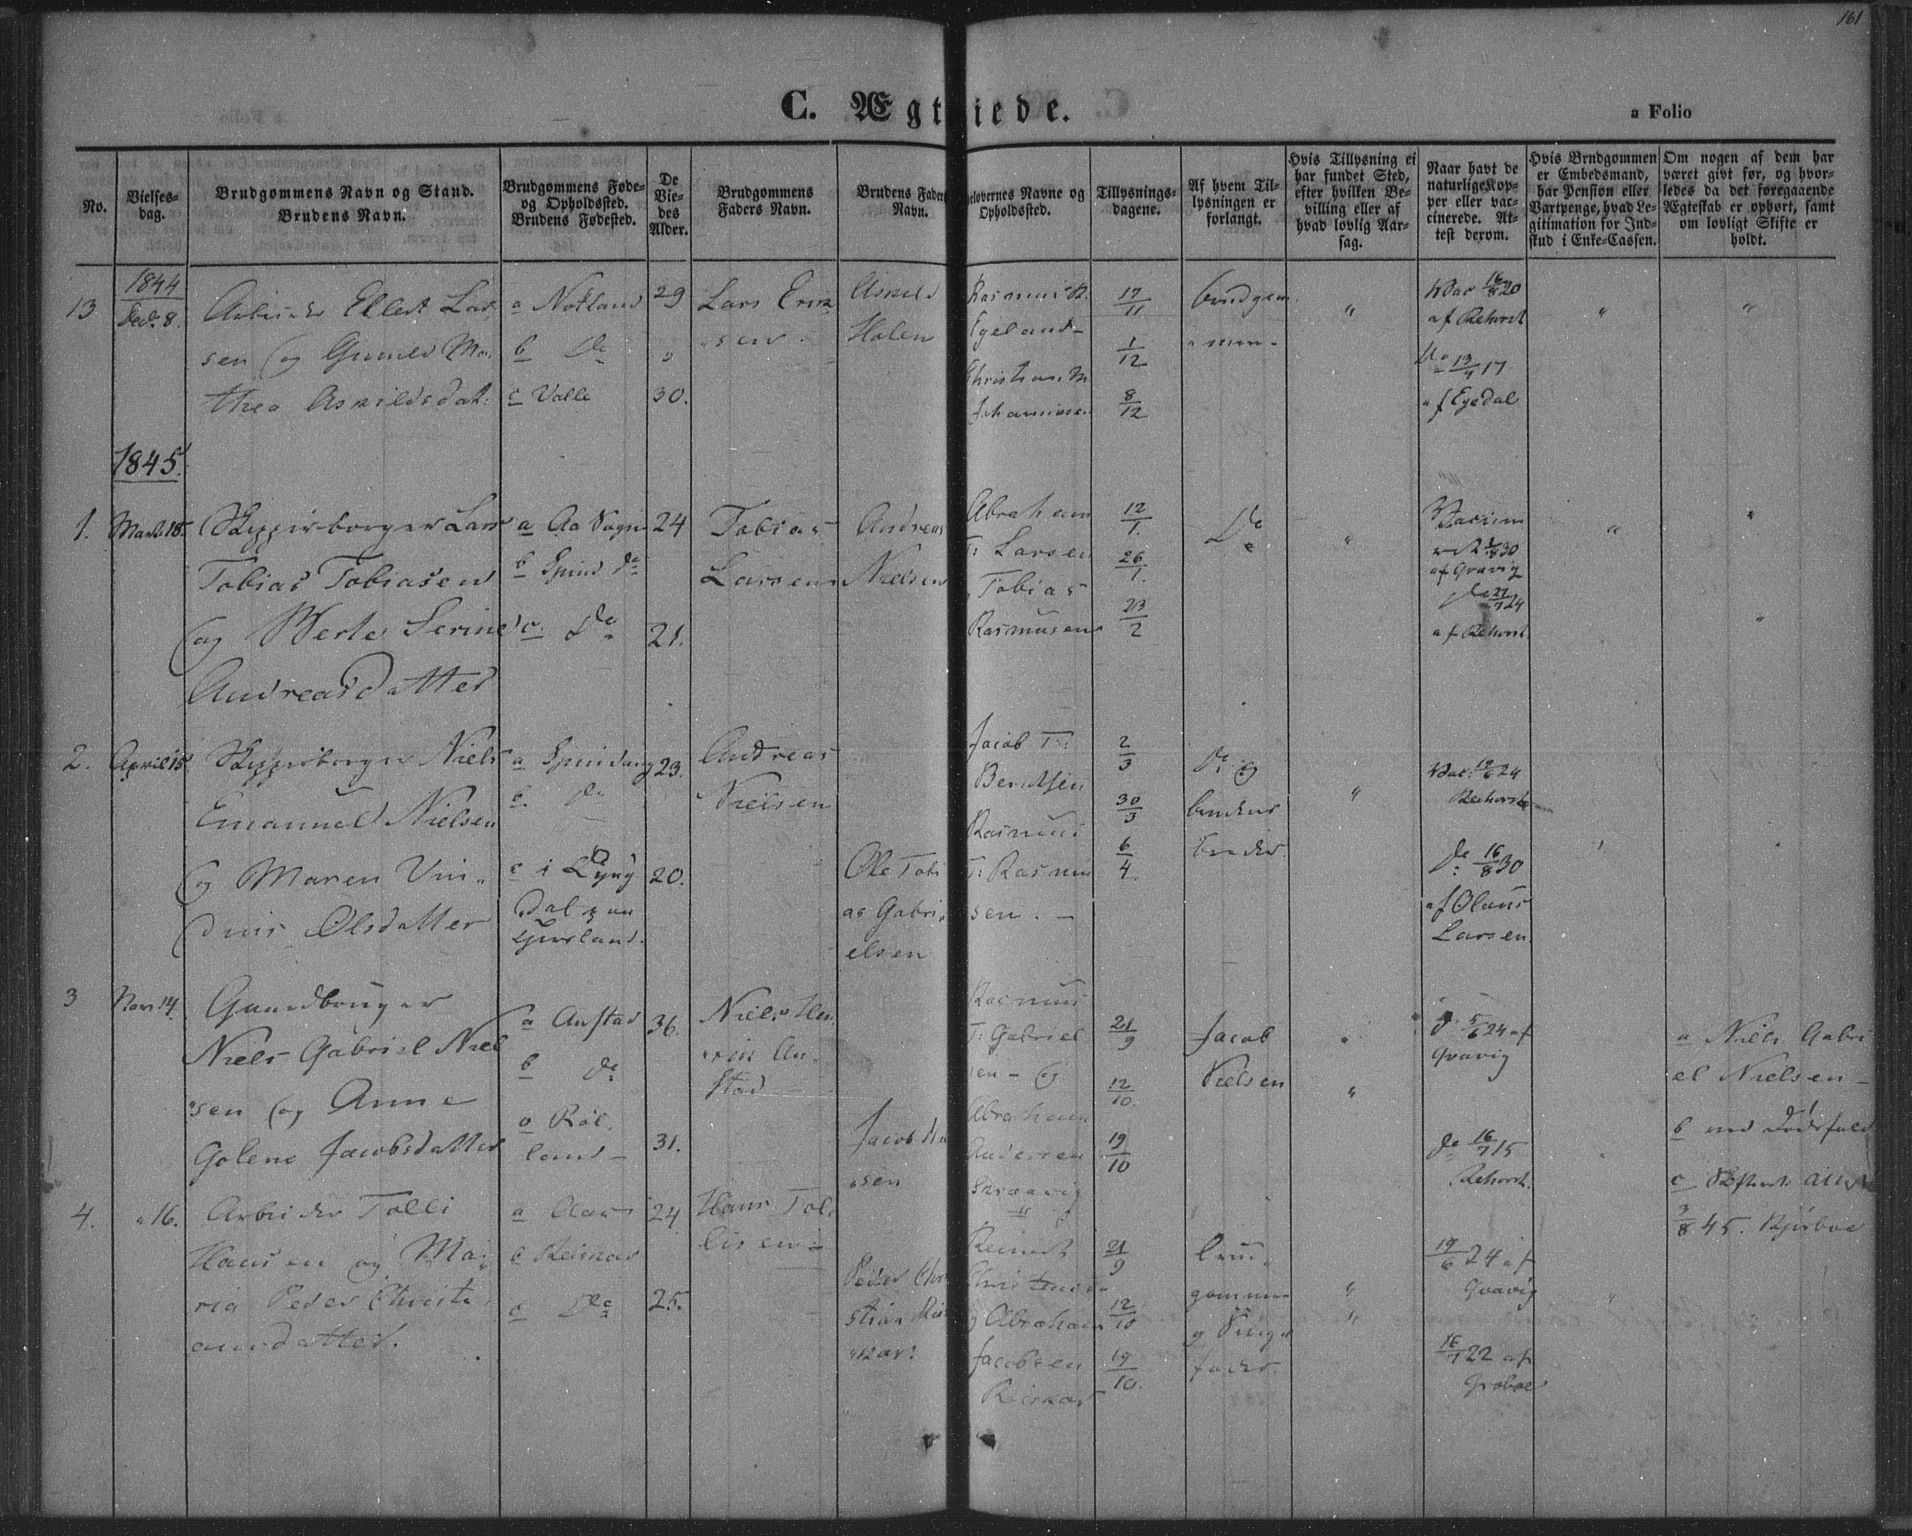 161
C. Ægteviede.
a Folio
No.
Vielses-
dag.
Brudgommens Navn og Stand.
Brudens Navn.
Brudgommens Føde-
og Opholdssted.
Brudens Fødested.
De
Vie-
des
Alder.
Brudgommens
Faders Navn.
Brudens Faders
Navn.
Forlovernes Navne og
Opholdssted.
Tillysnings-
dagene.
Af hvem Til-
lysningen er
forlangt.
Hvis Tillysning ei
har fundet Sted,
efter hvilken Be-
villing eller af
hvad lovlig Aar-
sag.
Naar havt de
naturlige Kop-
per eller vac-
cinerede. At-
test derom.
Hvis Brudgommen
er Embedsmand,
har Pension eller
Vartpenge, hvad Le-
gitimation for Ind-
skud i Enke-Cassen.
Om nogen af dem har
været givt før, og hvor-
ledes da det foregaaende
Ægteskab er ophørt, samt
om lovligt Skifte er
holdt.
1844
13 Decbr 8. Arbeider Ellert Lar-
sen og Gunild Ma-
thea Asnildsdatt:
a Notland
b Do
c Valle
29
"
30.
Lars Erik
sen
Asnild
Holen
Rasmus R.
Egeland
Christian M
Johannesen
17/11
1/12
8/12
brudgom
men
"
Vac 16/8 20
af Rehorst
Do 13/9 17
af Egedal
"
"
1845.
1. Marts 18. Skipperborger Lars
Tobias Tobiasen
og Berte Serine
Andreasdatter
a Aa Sogn
b Spind do
c. Do
24
21.
Tobias
Larsen
Andreas
Nielsen
Abraham
T: Larsen
Tobias
Rasmusen
12/1.
26/1.
23/2
Do
"
Vaccin
af Gravig
Do 27/7 24
af Rehorst.
"
"
"
2. April 15. Skipperborger Niels
Emanuel Nielsen
og Maren Vin-
dnis Olsdatter
a Spindang
b. Do
c i Lyng
dal paa
23.
20.
Andreas
Nielsen
Ole Tobi
as Gabri
elsen
Jacob T:
Berntsen
Rasmus
T: Rasmu
sen. -
2/3
30/3
6/4
Do og
brudens
broder
"
Vac: 24
Rehorst
Do 16/8 30
af Olaus
Larsen
3 Novr 14. Gaardbruger
Niels Gabriel Niel
sen og Anne
Golene Jacobsdatter
a Anstad
b Do
c Røl.
land
36.
31.
Niels Hen
rik An-
stad
Jacob
sen
Rasmus
T: Gabriel
sen - og
Abraham
Andersen
21/9
12/10.
19/10
Jacob
Nielsen
"
Do 5/6 24 af
Gravig
Do 16/7 15
Rehorst.
a Niels Gabri
el Nielsen -
b ved Dødsfald
c Skifteatt:
3/8 45.
4. " 16. Arbeider Tolli
Hansen og Ma-
ria Peder Christi
ansdatter.
a Aaas
b Reierse
c Do
24
25.
Hans Tol
lisen -
Peder Chri
stian
Reinert
Christensen
og Abraham
Jacobsen
21/9
12/10
19/10.
brud
gommen
og Piges
fader.
"
"
19/6 24 af
Gravig
16/7 22 af
"